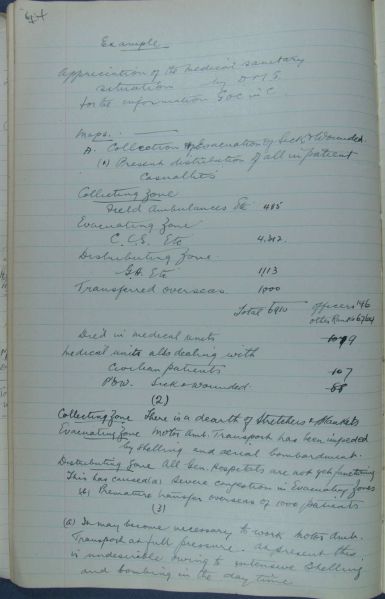 Example
Appreciation of the medical sanitary
situation by D M S
for the information GOC in C.
Maps.
A. Collection & Evacuation of Sick & Wounded.
(1) Present distribution of all in patient
Casualties
Collecting Zone
Field Ambulances Etc 485
Evacuating Zone
C.C.S. Etc 4312
Distributing Zone
G.H. Etc 1113
Transferred overseas 1000
Total 6910 officers 146
other Ranks 6764
Died in medical units
medical units also dealing with
Civilian patients 107
P.O.W. Sick & wounded
(2)
Collecting Zone There is a dearth of Stretchers & Blankets
Evacuating Zone Motor Amb. Transport has been impeded
by shelling and aerial bombardment.
Distributing Zone All Gen. Hospitals are not yet functioning
This has caused (a) Severe congestion in Evacuating Zones
(b) Premature transfer overseas of 1000 patients
(3)
(a) It may become necessary to work motor Amb.
Transport at full pressure. At present this
is undesirable owing to intensive shelling
and bombing in the day time